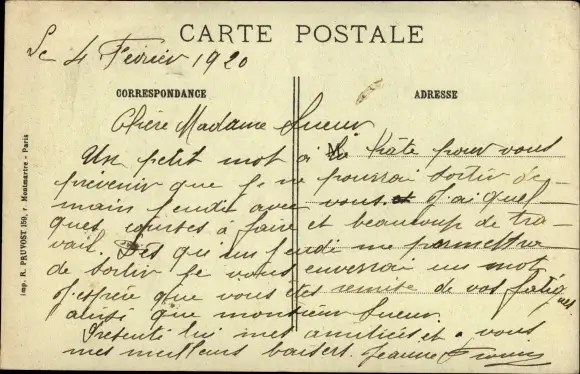 CARTE POSTALE
Le 4 Février 1920
CORRESPONDANCE
ADRESSE
Chère Madame Sueur
Un petit mot à la hâte pour vous
prévenir que je ne pourrai sortir de-
main jeudi avec vous et j'ai quel-
ques courses à faire et beaucoup de tra-
vail. Dès qu'un jeudi me permettra
de sortir je vous enverrai un mot
J'espère que vous êtes remise de vos fatig
ues
ainsi que monsieur Sueur.
Présenté lui mes amitiées et a vous
mes meilleurs baisers. Jeanne
imp. R. PRUVOST 159, r. Montmartre - Paris